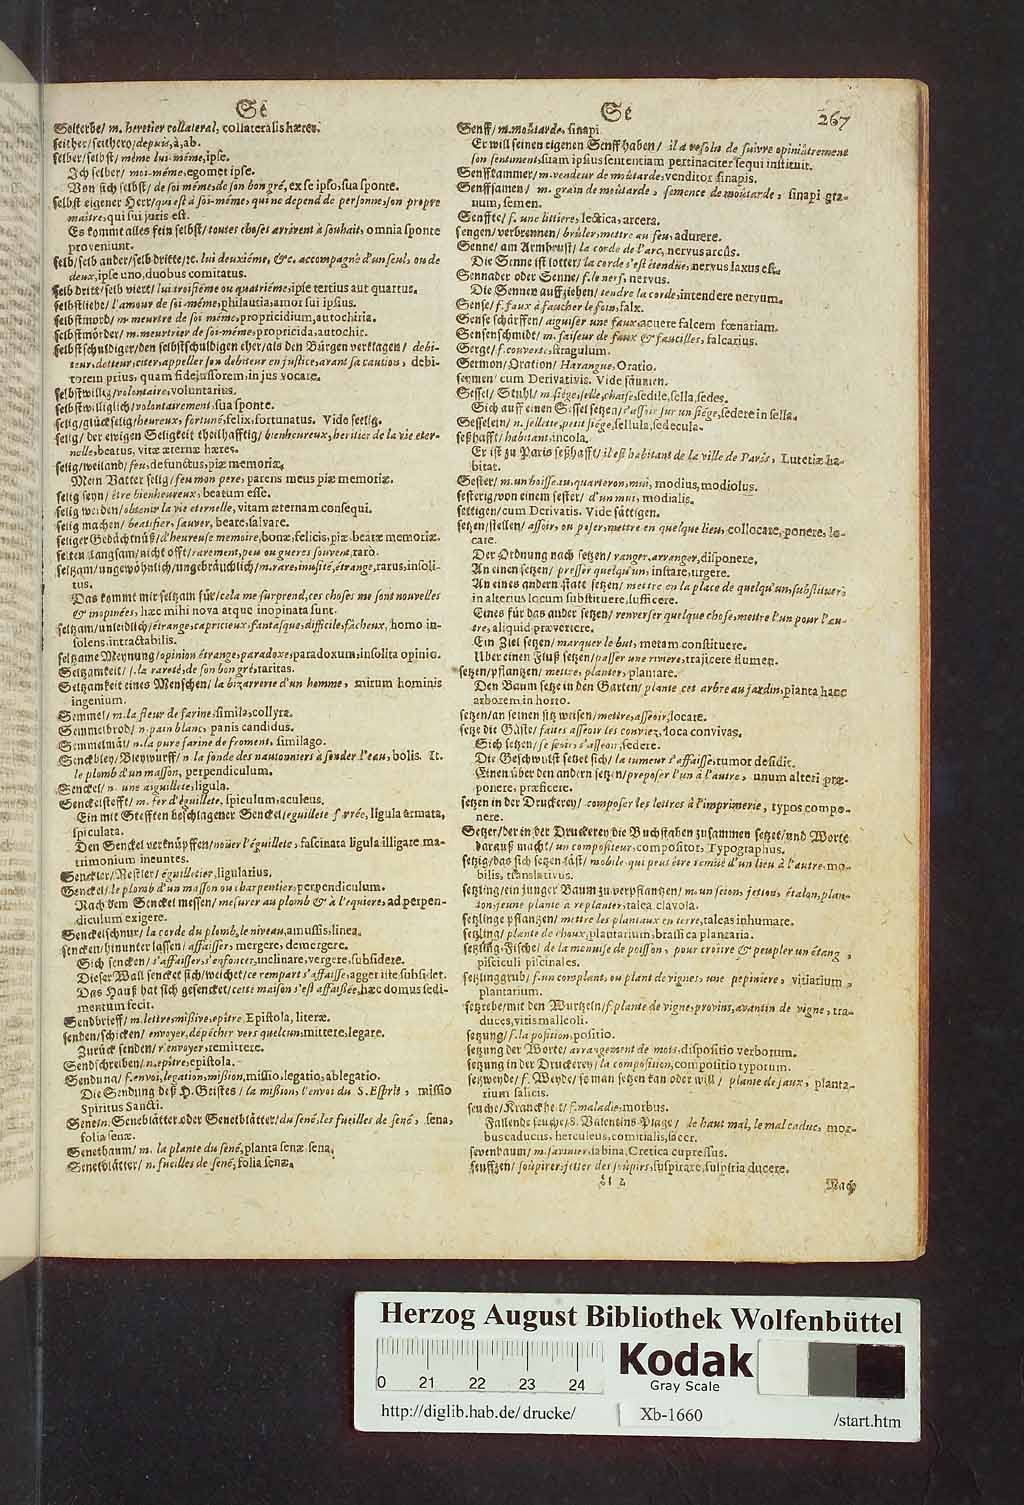 Se
Seiterbe/ m. heretier collateral, collateralis hæres.
seither/seithero/depuis, à, ab.
selber/selbst/ même lui-même, ipse.
Ich selber/ moi-même, egomet ipse.
Von sich selbst/ de soi même, de son bon gré, ex se ipso, sua sponte.
selbst eigener Herr/ qui est à soi-même, qui ne depend de personne, son propre
maitre, qui sui juris est.
Es kommt alles sein selbst/ toutes choses arrivent à souhait, omnia sponte
proveniunt.
selb/selb ander/selb dritte/ꝛc. lui deuxiéme, &c. accompagné d'un seul, ou de
deux, ipse uno, duobus comitatus.
selb dritt/selb viert/ lui troisiéme ou quatriéme, ipse tertius aut quartus.
selbstliebe/ l'amour de soi-même, philautia, amor sui ipsius.
selbstmord/ m. meurtre de soi même, propricidium, autochiria.
selbstmörder/ m. meurtrier de soi-même, propricida, autochir.
selbstschuldiger/den selbstschuldigen eher/als den Bürgen verklagen/ debi-
teur, detteur, citer, appeller son debiteur en justice, avant sa caution, debi-
torem prius, quam fidejussorem, in jus vocare.
selbstwillig/volontaire, voluntarius.
selbstwilliglich/volontairement, sua sponte.
selig/glückselig/heureux, fortuné, felix, fortunatus. Vide seelig.
selig/ der ewigen Seligkeit theilhafftig/ bienheureux, heritier de la vie eter-
nelle, beatus, vitæ æternæ hæres.
selig/weiland/ feu, defunctus, piæ memoriæ.
Mein Vatter selig/ feu mon pere, parens meus piæ memoriæ.
selig seyn/ être bienheureux, beatum esse.
selig werden/ obtenir la vie eternelle, vitam æternam consequi.
selig machen/ beatifier, sauver, beare, salvare.
seliger Gedächtnüß/ d'heureuse memoire, bonæ, felicis, piæ, beatæ memoriæ.
selten/langsam/nicht offt/rarement, peu ou gueres souvent, raro.
seltzam/ungewöhnlich/ungebräuchlich/ m. rare, inusité, étrange, rarus, insoli-
tus.
Das kommt mir seltzam für/ cela me surprend, ces choses me sont nouvelles
& inopinées, hæc mihi nova atque inopinata sunt.
seltzam/unleidlich/ étrange, capricieux, fantasque, difficile, fâcheux, homo in-
solens, intractabilis.
seltzame Meynung/ opinion étrange, paradoxe, paradoxum, insolita opinio.
Seltzamkeit/ f. la rareté, de son bon gré, raritas.
Seltzamkeit eines Menschen/ la bizarrerie d'un homme, mirum hominis
ingenium.
Semmel/ m. la fleur de farine, simila, collyra.
Semmelbrod/ n. pain blanc, panis candidus.
Semmelmäl/ n. la pure farine de froment, similago.
Senckbley/Bleywurff/ n. la sonde des nautonniers à sonder l'eau, bolis. It.
le plomb d'un masson, perpendiculum.
Senckel/ n. une aiguillete, ligula.
Senckelstefft/ m. fer d'éguillete, spiculum, aculeus.
Ein mit Stefften beschlagener Senckel/eguillete ferrée, ligula armata,
spiculata.
Den Senckel verknüpffen/noüer l'éguillete, fascinata ligula illigare ma-
trimonium ineuntes.
Senckler/Nestler/ éguilletier, ligularius.
Senckel/ le plomb d'un masson ou charpentier, perpendiculum.
Nach dem Senckel messen/ mesurer au plomb & à l'equiere, ad perpen-
diculum exigere.
Senckelschnur/ la corde du plomb, le niveau, amussis, linea.
sencken/hinunter lassen/ affaisser, mergere, demergere.
Sich sencken/ s'affaisser, s'enfoncer, inclinare, vergere, subsidere.
Dieser Wall sencket sich/weichet/ce rempart s'affaisse, agger iste subsidet.
Das Hauß hat sich gesencket/cette maison s'est affaissée, hæc domus sedi-
mentum fecit.
Sendbrieff/ m. lettre, missive, epître, Epistola, literæ.
senden/schicken/ envoyer, dépécher vers quelcun, mittere, legare.
Zurück senden/ r'envoyer, remittere.
Sendschreiben/ n. epître, epistola.
Sendung/ f. envoi, legation, mission, missio, legatio, ablegatio.
Die Sendung deß H. Geistes/ la mission, l'envoi du S. Esprit, missio
Spiritus Sancti.
Sene/n. Seneblätter oder Senetblätter/ du sené, les fueilles de sené, sena,
folia senæ.
Senetbaum/ m. la plante du sené, planta senæ, sena.
Senetblätter/ n. fueilles de sené, folia senæ.
Se
267
Senff/ m. moûtarde, sinapi.
Er will seinen eigenen Senff haben/ il a resolu de suivre opiniâtrement
son sentiment, suam ipsius sententiam pertinaciter sequi instituit.
Senffkammer/ m. vendeur de moûtarde, venditor sinapis.
Senffsamen/ m. grain de moûtarde, semence de moûtarde, sinapi gra-
num, semen.
Senffte/ f. une littiere, lectica, arcera.
sengen/verbrennen/ brûler, mettre au feu, adurere.
Senne/ am Armbrust/ la corde de l'arc, nervus arcûs.
Die Senne ist lotter/ la corde s'est étendüe, nervus laxus est.
Sennader oder Senne/ f. le nerf, nervus.
Die Sennen auffziehen/ tendre la corde, intendere nervum.
Sense/ f. faux à faucher le foin, falx.
Sense schärffen/ aiguiser une faux, acuere falcem fœnariam.
Sensenschmidt/ m. faiseur de faux & faucilles, falcarius.
Serge/ f. couverte, stragulum.
Sermon/Oration/ Harangue, Oratio.
sermen/ cum Derivativis. Vide säumen.
Sessel/ Stuhl/ m. siége, selle, chaise, sedile, sella, sedes.
Sich auff einen Sessel setzen/ s'asseoir sur un siége, sedere in sella.
Sesselein/ n. sellette, petit siége, sellula, sedecula.
seßhafft/ habitant, incola.
Er ist zu Paris seßhafft/ il est habitant de la ville de Paris, Lutetiæ ha-
bitat.
Sester/ m. un boisseau, quarteron, mui, modius, modiolus.
sesterig/von einem sester/ d'un mui, modialis.
settigen/ cum Derivatis. Vide sättigen.
setzen/stellen/ assoir, ou poser, mettre en quelque lieu, collocare, ponere, lo-
care.
Der Ordnung nach setzen/ ranger, arranger, disponere.
An einen setzen/ presser quelqu'un, instare, urgere.
An eines andern statt setzen/ mettre en la place de quelqu'un, substituer,
in alterius locum substituere, sufficere.
Eines für das ander setzen/ renverser quelque chose, mettre l'un pour l'au-
tre, aliquid prævertere.
Ein Ziel setzen/ marquer le but, metam constituere.
Uber einen Fluß setzen/ passer une riviere, trajicere flumen.
setzen/pflantzen/ mettre, planter, plantare.
Den Baum setze in den Garten/ plante cet arbre au jardin, planta hanc
arborem in horto.
setzen/an seinen sitz weisen/mettre, asseoir, locare.
setze die Gäste/ faites asseoir les conviez, loca convivas.
Sich setzen/ se seoir, s'asseoir, sedere.
Die Geschwulst setzet sich/ la tumeur s'affaisse, tumor desidit.
Einen über den andern setzen/ preposer l'un à l'autre, unum alteri præ-
ponere, præficere.
setzen in der Druckerey/ composer les lettres à l'imprimerie, typos compo-
nere.
Setzer/der in der Druckerey die Buchstaben zusammen setzet/und Worte
darauß macht/ un compositeur, compositor, Typographus.
setzig/das sich setzen läst/ mobile, qui peut être remüé d'un lieu à l'autre, mo-
bilis, translativus.
setzling/ein junger Baum zu verpflantzen/ m. un scion, jetton, étalon, plan-
ton, jeune plante à replanter, talea, clavola.
setzlinge pflantzen/ mettre les plantaux en terre, taleas inhumare.
setzling/ plante de choux, plantarium, brassica planzaria.
setzling-Fische/ de la menuise de poisson, pour croitre & peupler un étang,
pisciculi piscinales.
setzlinggrub/ f. un complant, ou plant de vignes, une pepiniere, vitiarium,
plantarium.
setzrebe/mit den Wurtzeln/ f. plante de vigne, provins, avantin de vigne, tra-
duces, vitis malleoli.
setzung/ f. la position, positio.
setzung der Worte/ arrangement de mots, dispositio verborum.
setzung in der Druckerey/ la composition, compositio typorum.
setzweyde/ f. Weyde/ so man setzen kan oder will/ plante de jaux, planta-
rium salicis.
seuche/Kranckheit/ f. maladie, morbus.
Fallende seuche/S. Valentins-Plage/ le haut mal, le mal caduc, mor-
bus caducus, herculeus, comitialis, sacer.
sevenbaum/ m. savinier, sabina, Cretica cupressus.
seufftzen/ soûpirer, jetter des soûpirs, suspirare, suspiria ducere.
Ll 2
Nach
Herzog August Bibliothek Wolfenbüttel
0 21 22 23 24
Kodak
Gray Scale
http://diglib.hab.de/drucke/
Xb-1660
/start.htm